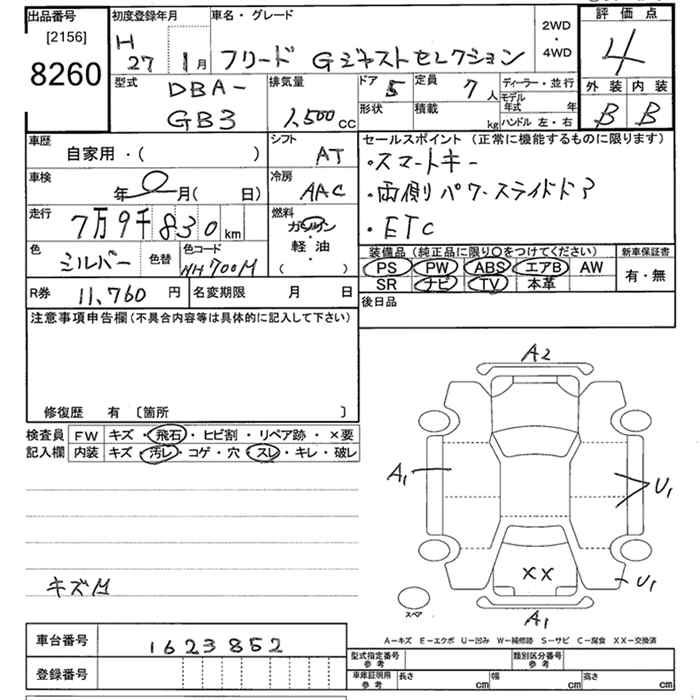 出品番号 初度登録年月 車名・グレード 2WD・4WD 評価点
[2156]
8260
H27 1月 フリード Gジャストセレクション 4
型式 DBA-GB3 排気量 1,500cc ドア 5 定員 7人 ディーラー・並行 外装 内装
形状 積載 kg モデル年式 年 B B
ハンドル 左・右
車歴 自家用・( ) シフト AT セールスポイント(正常に機能するものに限ります)
・スマートキー
車検 年 0 月( 日) 冷房 AAC ・両側りパワースライドドア
走行 7万9千830km 燃料 ガソリン ・ETC
軽・油
( )
色 シルバー 色替 色コード NH700M 装備品(純正品に限り〇をつけてください) 新車保証書
PS PW ABS エアB AW 有・無
SR ナビ TV 本革
R券 11,760円 名変期限 月 日 後日品
注意事項申告欄(不具合内容等は具体的に記入して下さい)
修復歴 有 〔箇所 〕
検査員 FW キズ・飛石・ヒビ割・リペア跡・×要
記入欄 内装 キズ・汚レ・コゲ・穴・スレ・キレ・破レ
A2
A1 U1
XX U1
キズM
スペア A1
A-キズ E-エクボ U-凹み W-補修跡 S-サビ C-腐食 XX-交換済
車台番号 1623852
登録番号
型式指定番号 参考 類別区分番号 参考
車庫証明用 参考 長さ cm 幅 cm 高さ cm